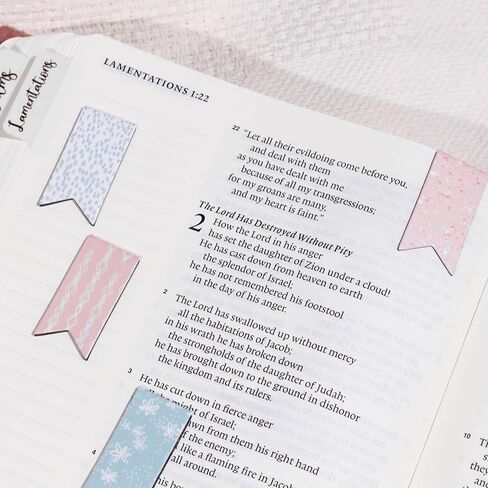 Lamentations
LAMENTATIONS 1:22
22 "Let all their evildoing come before you,
and deal with them
as you have dealt with me
because of all my transgressions;
for my groans are many,
and my heart is faint."
The Lord Has Destroyed Without Pity
2 How the Lord in his anger
has set the daughter of Zion under a cloud!
He has cast down from heaven to earth
the splendor of Israel;
he has not remembered his footstool
in the day of his anger.
2 The Lord has swallowed up without mercy
all the habitations of Jacob;
in his wrath he has broken down
the strongholds of the daughter of Judah;
he has brought down to the ground in dishonor
the kingdom and its rulers.
3 He has cut down in fierce anger
might of Israel;
from them his right hand
of the enemy;
like a flaming fire in Jacob
all around.
4
his
10 The
sit
they